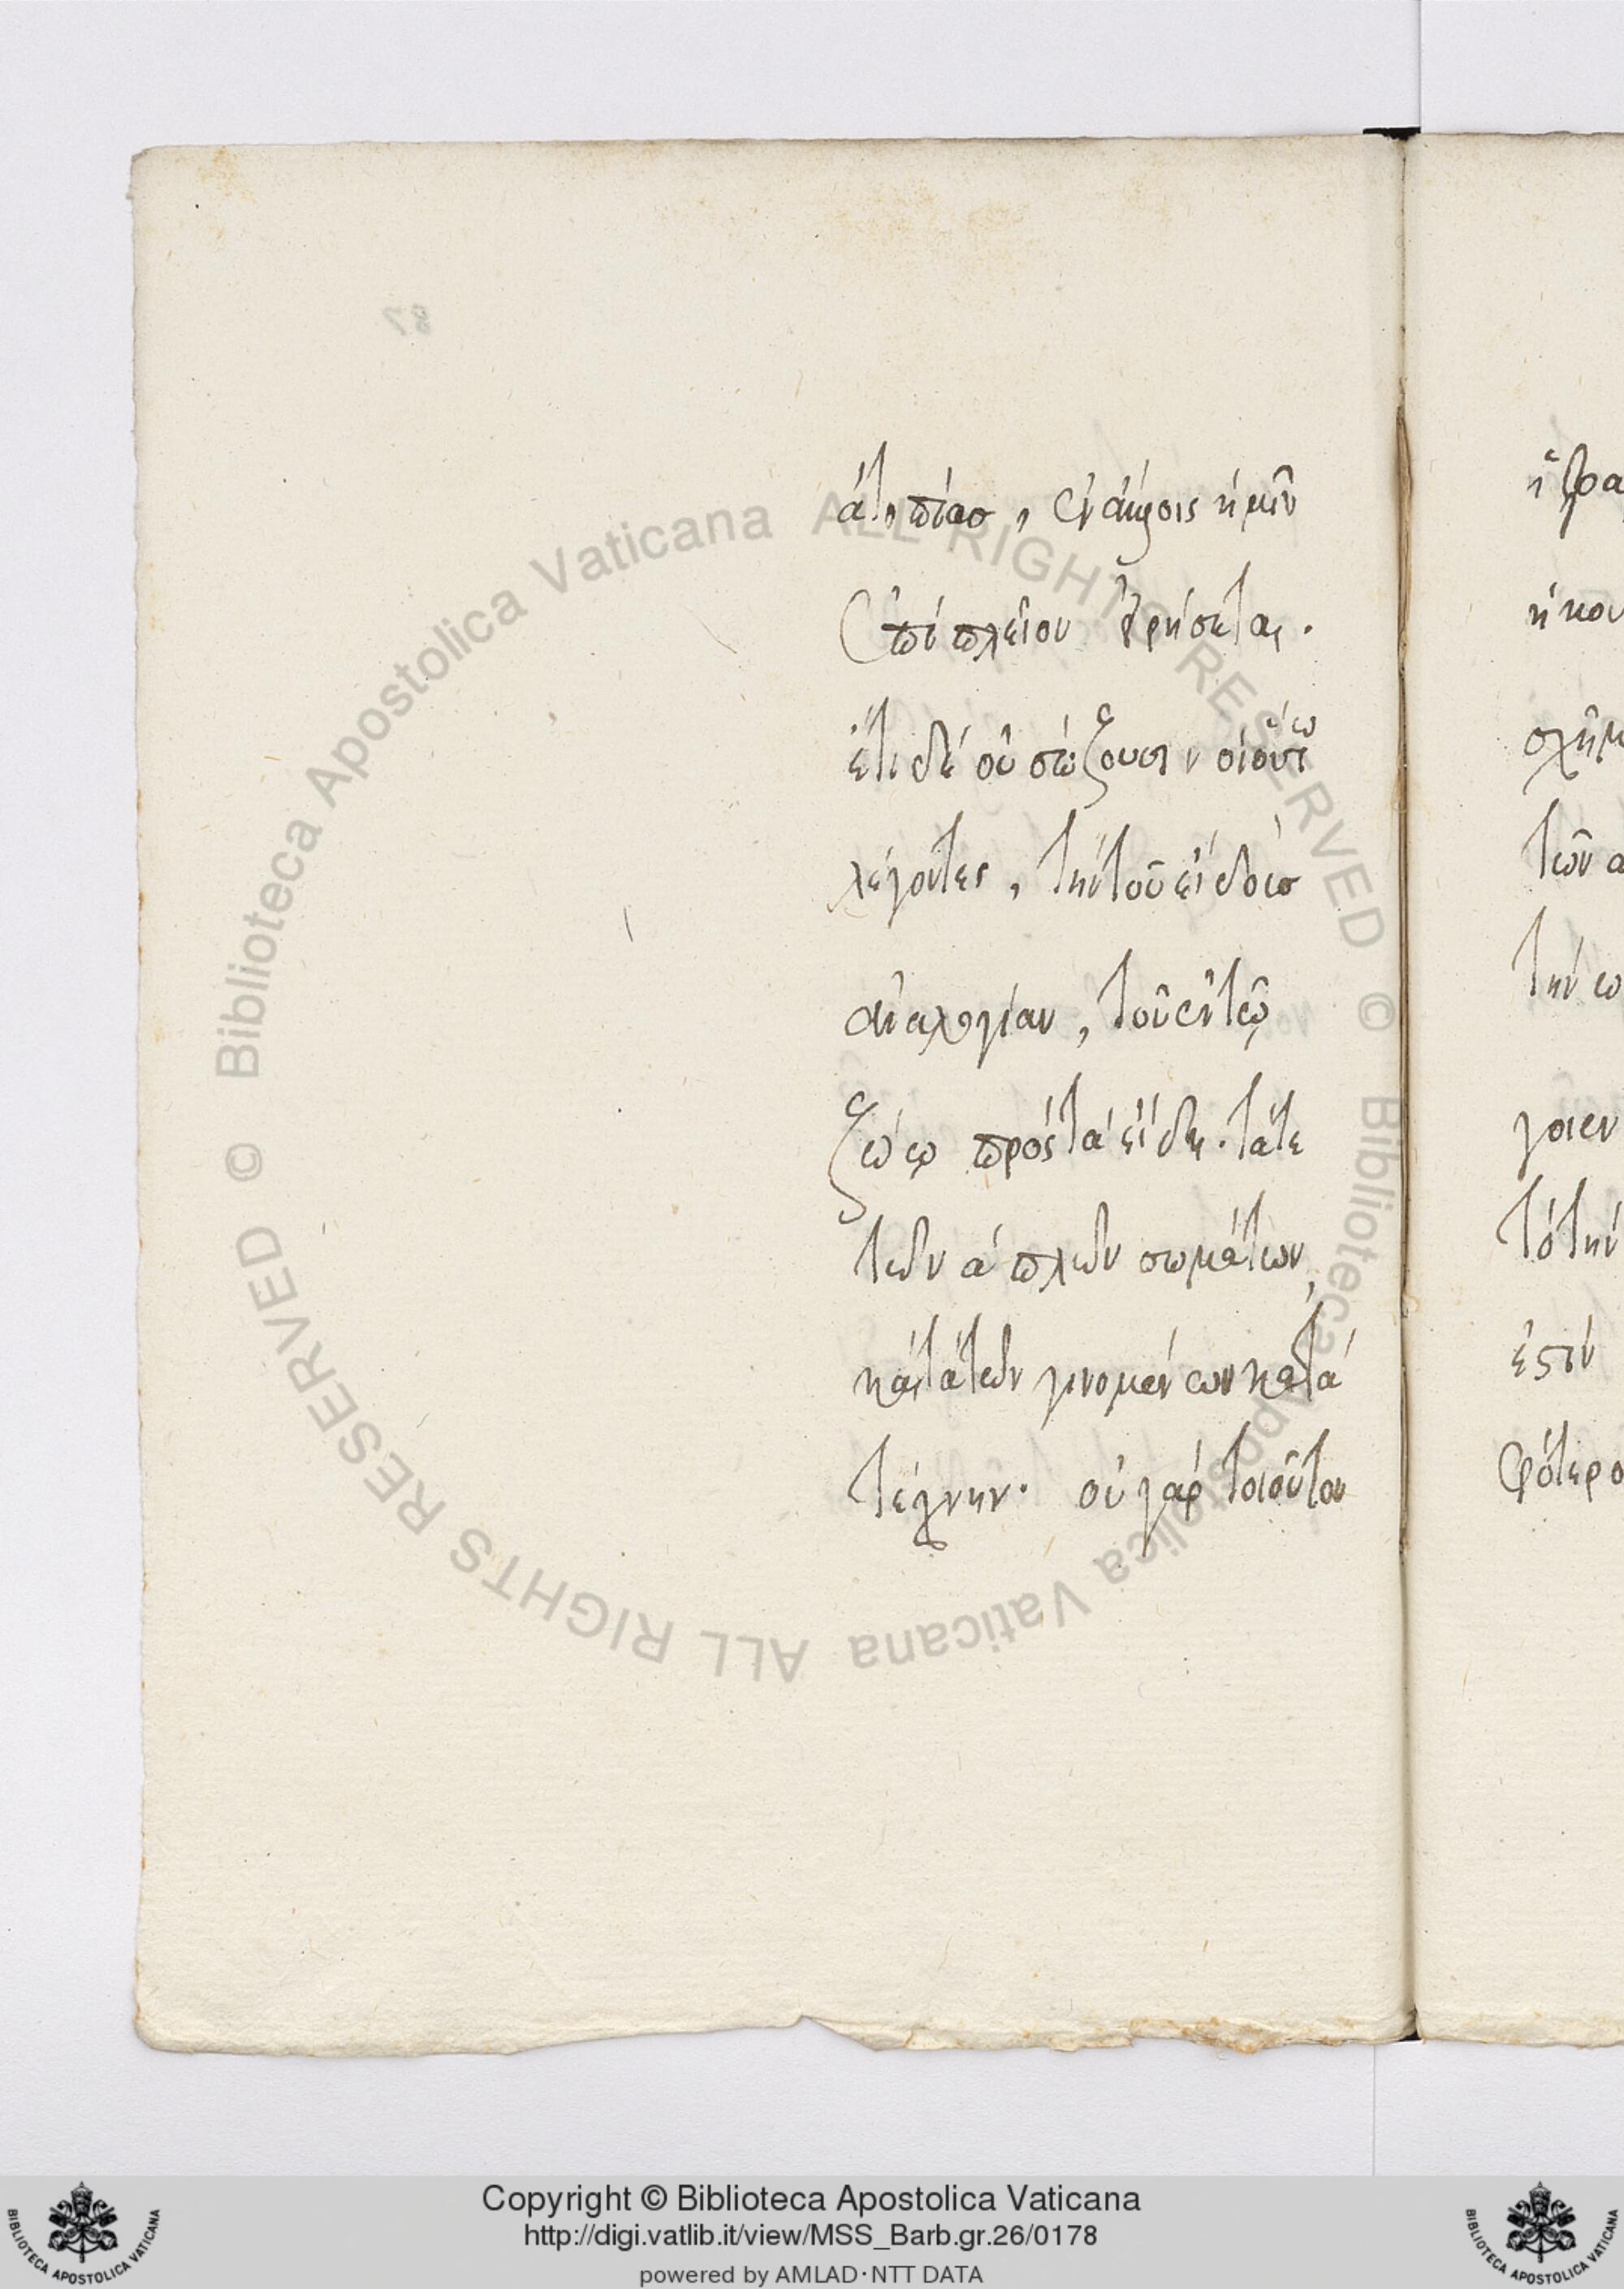 87
ἀτοπίασ, ἐν ἄλλοις ἡμῖν
ἐπὶ πλεῖον εἰρήσεται.
ἔτι δὲ οὐ σώζουσιν οἱ οὕτω
λέγοντες, τὴν τοῦ εἴδουσ
ἀναλογίαν, τοῦ ἐν τῷ
ζώῳ πρὸς τὰ εἴδη. τά τε
τῶν ἁπλῶν σωμάτων,
καὶ τὰ τῶν γινομένων κατὰ
τέχνην. οὐ γὰρ τοιοῦτον
ἡ κου
σχῆμ
τῶν α
τὴν ω
γοιεν
τὸ τὴν
ἐστὶν
φότερο
© Biblioteca Apostolica Vaticana ALL RIGHTS RESERVED © Biblioteca Apostolica Vaticana ALL RIGHTS RESERVED
Copyright © Biblioteca Apostolica Vaticana
http://digi.vatlib.it/view/MSS_Barb.gr.26/0178
powered by AMLAD·NTT DATA
BIBLIOTECA APOSTOLICA VATICANA
BIBLIOTECA APOSTOLICA VATICANA